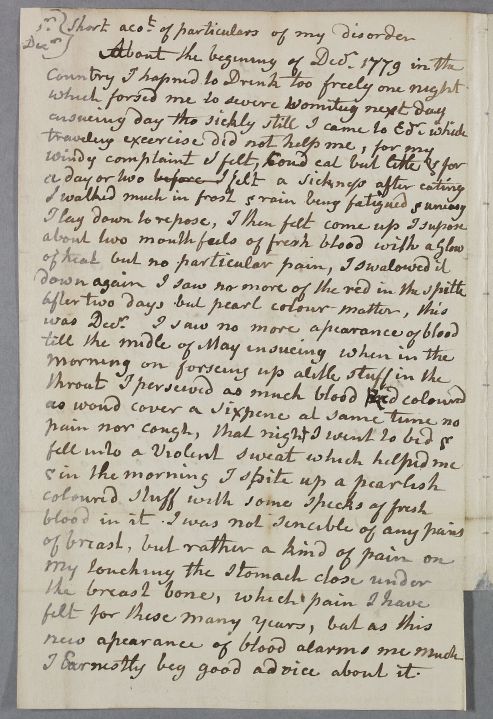 Short acot. of particulars of my disorder
About the begining of Decr. 1779 in the
Country I hapned to Drink too freely one night
which forsed me to severe Vomiting next day
ensueing day tho sickly still I came to Edr. which
traveling excercise did not help me, for my
windy complaint I felt, Coud eat but little & for
a day or two before I felt a sickness after eating
I walked much in frost & rain being fatigued & uneasy
I lay down to repose, I then felt come up I supose
about two mouthfeels of fresh blood with a glow
of heat but no particular pain, I swalowed it
down again I saw no more of the red in the spitle
after two days but pearl colour matter, this
was Decr. I saw no more apearance of blood
till the midle of May ensueing when in the
morning on forseing up a litle stuff in the
throat I perseived as much blood Red coloured
as woud cover a sixpene at same time no
pain nor cough, that night I went to bed &
fell into a Violent sweat which helpid me
& in the morning I spite up a pearlish
coloured stuff with some specks of fresh
blood in it. I was not sencible of any pains
of breast, but rather a kind of pain on
my touching the stomach close under
the breast bone, which pain I have
felt for these many years, but as this
new apearance of blood alarms me much
I Earnestly beg good advice about it.